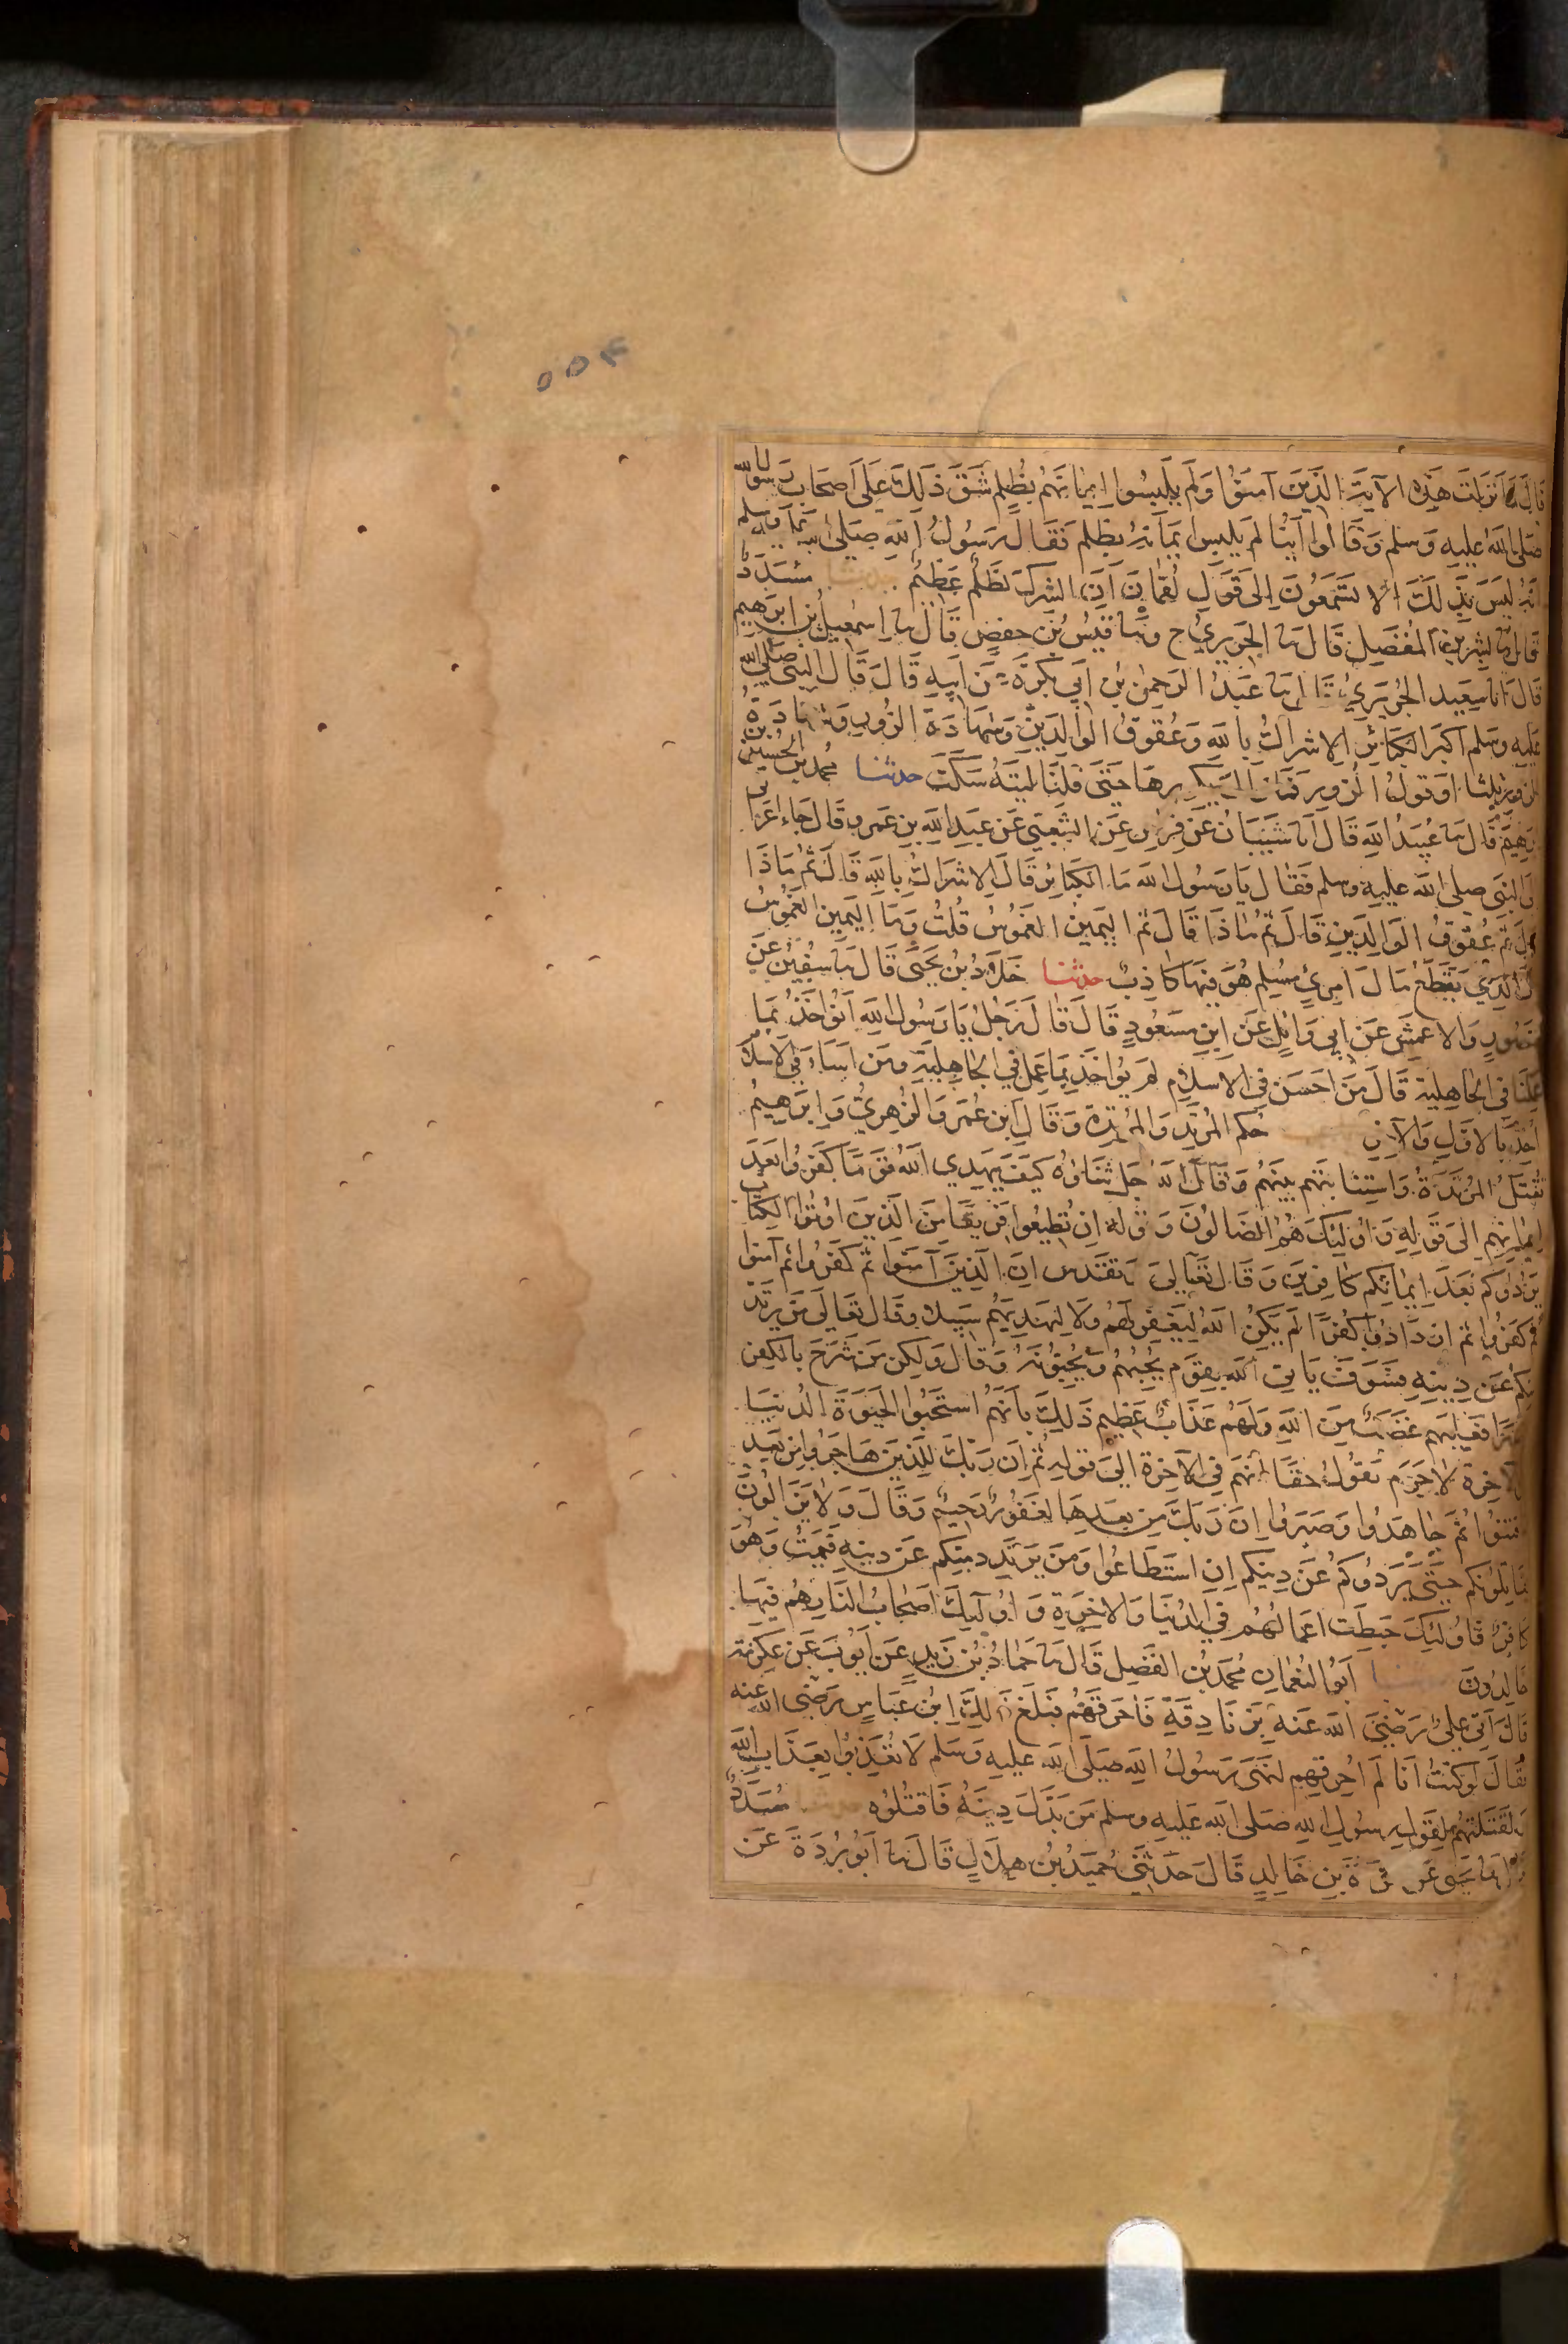 ٥٥٤
قَالَ لَمَّا نَزَلَت هَذِهِ الآيَةُ الَّذِينَ آمَنُوا وَلَمْ يَلْبِسُوا إِيمَانَهُمْ بِظُلْمٍ شَقَّ ذَلِكَ عَلَى أَصْحَابِ رَسُولِ الله
صَلَّى الله عليه وَسلم وَقَالُوا أَيُّنَا لَمْ يَلبِس إِيمَانَهُ بِظُلْمٍ فَقَالَ رَسُولُ اللهِ صَلَّى الله عليه وسلم
إنه لَيْسَ بِذَلِكَ أَلَا تَسْتَمِعُونَ إِلَى قَوْلِ لُقْمَانَ إِنَّ الشِّرْكَ لَظُلْمٌ عَظِيمٌ حدثنا مُسَدَّدٌ
قَالَ ثنا بِشْرُ بنُ المُفَضَّلِ قَالَ ثنا الجُرَيرِيُّ ح وثنا قَيْسُ بْنُ حَفْصٍ قَالَ ثنا إسمٰعِيلُ بْنُ ابْرٰهِيم
قَالَ أنا سَعِيد الجُرَيْرِيُّ قَالَ ثنا عَبْدُ الرَّحمٰنِ بْنُ أَبِي بَكْرَةَ عَنْ أَبِيهِ قَالَ قَالَ النَّبِيُّ صَلَّى الله
عَلَيهِ وسَلم أَكبَرُ الكَبَائِرِ الإِشْرَاكُ بِاللهِ وَعُقُوقُ الوَالِدَيْنِ وَشَهَادَةُ الزُّورِ وَشَهَادَةُ
الزُّورِ ثَلٰثًا أَوْ قَولُ الزُّورِ فَمَا زَالَ يُكَرِّرُهَا حَتَّى قُلْنَا لَيْتَهُ سَكَتَ حدثنا مُحمدُ بن الحُسَينِ بن
إِبْرٰهِيمَ قَالَ ثنا عُبَيدُ اللهِ قَالَ أنا شَيْبَانُ عَنْ فِرَاسٍ عَنِ الشَّعْبِيِّ عَنْ عَبْدِ اللهِ بنِ عَمرٍو قَالَ جَاءَ أَعْرَا
إلى النَّبِيِّ صلى الله عليه وسلم فَقَالَ يَا رَسُولَ الله مَا الكَبَائِرُ قَالَ الإِشْرَاكُ بِاللهِ قَالَ ثُمَّ مَاذَا
قَالَ ثُمَّ عُقُوقُ الوَالِدَيْنِ قَالَ ثُمَّ مَاذَا قَالَ ثُمَّ اليَمِينُ الغَمُوسُ قُلْتُ وَمَا اليَمِينُ الغَمُوسُ
قَالَ الَّذِي يَقْتَطِعُ مَالَ امْرِئٍ مُسْلِمٍ هُوَ فِيهَا كَاذِبٌ حدثنا خَلَّادُ بْنُ يَحْيَى قَالَ ثنا سُفْيٰنُ عَنْ
مَنْصُورٍ وَالأَعْمَشِ عَنْ أَبِي وَائِلٍ عَنِ ابْنِ مَسْعُودٍ قَالَ قَالَ رَجُلٌ يَا رَسُولَ اللهِ أَنُؤَاخَذُ بِمَا
عَمِلْنَا فِي الجَاهِلِيَّةِ قَالَ مَنْ أَحْسَنَ فِي الإِسْلَامِ لَم يُؤَاخَذْ بِمَا عَمِلَ فِي الجَاهِلِيَّةِ وَمَنْ أَسَاءَ فِي الإِسْلَامِ
أُخِذَ بِالأَوَّلِ وَالآخِرِ حُكمِ المُرْتَدِّ وَالمُرْتَدَّةِ وَقَالَ ابنُ عُمَرَ وَالزُّهْرِيُّ وَإِبْرٰهِيمُ
تُقْتَلُ المُرْتَدَّةُ وَاسْتِتَابَتِهِم بَيْنَهُمْ وَقَالَ اللهُ جَلَّ ثَنَاؤُهُ كَيْفَ يَهْدِي اللهُ قَوْمًا كَفَرُوا بَعْدَ
إِيمَانِهِم إِلَى قَوْلِهِ وَأُولٰئِكَ هُمُ الضَّالُّونَ وَقَولِهِ إِنْ تُطِيعُوا فَرِيقًا مِنَ الَّذِينَ أُوتُوا الكِتَابَ
يَرُدُّوكُمْ بَعْدَ إِيمَانِكُمْ كَافِرِينَ وَقَالَ تَعَالَى إِنَّ الَّذِينَ آمَنُوا ثُمَّ كَفَرُوا ثُمَّ آمَنُوا
ثُمَّ كَفَرُوا ثُمَّ ازْدَادُوا كُفْرًا لَمْ يَكُنِ اللهُ لِيَغْفِرَ لَهُمْ وَلَا لِيَهْدِيَهُمْ سَبِيلًا وَقَالَ تَعَالَى مَنْ يَرْتَدَّ
مِنْكُمْ عَنْ دِينِهِ فَسَوْفَ يَأتِي اللهُ بِقَوْمٍ يُحِبُّهُمْ وَيُحِبُّونَهُ وَقَالَ وَلٰكِنْ مَنْ شَرَحَ بِالكُفْرِ
صَدْرًا فَعَلَيْهِم غَضَبٌ مِنَ اللهِ وَلَهُمْ عَذَابٌ عَظِيم ذَلِكَ بِأَنَّهُمُ اسْتَحَبُّوا الحَيٰوةَ الدُّنْيَا
الآخِرَةِ لَا جَرَمَ يَقُولُ حَقًّا أَنَّهُمْ فِي الآخِرَةِ إِلَى قَوْلِهِ ثُمَّ إِنَّ رَبَّكَ لِلَّذِينَ هَاجَرُوا مِنْ بَعْدِ
مَا فُتِنُوا ثُمَّ جَاهَدُوا وَصَبَرُوا إِنَّ رَبَّكَ مِنْ بَعْدِهَا لَغَفُورٌ رَحِيمٌ وَقَالَ وَلَا يَزَالُونَ
يُقَاتِلُونَكُمْ حَتَّى يَرُدُّوكُمْ عَنْ دِينِكُمْ إِنِ اسْتَطَاعُوا وَمَنْ يَرْتَدِدْ مِنْكُمْ عَنْ دِينِهِ فَيَمُتْ وَهُوَ
كَافِرٌ فَأُولٰئِكَ حَبِطَتْ أَعْمَالُهُمْ فِي الدُّنْيَا وَالآخِرَةِ وَأُولٰئِكَ أَصْحَابُ النَّارِ هُمْ فِيهَا
خَالِدُونَ حدثنا أَبُو النُّعْمَانِ مُحَمَّدُ بْنُ الفَضْلِ قَالَ ثنا حَمَّادُ بْنُ زَيدٍ عَنْ أَيُّوبَ عَنْ عِكْرِمَةَ
قَالَ أُتِيَ عَلِيٌّ رَضِيَ اللهُ عَنهُ بِزَنَادِقَةٍ فَأَحْرَقَهُمْ فَبَلَغَ ذَلِكَ ابْنَ عَبَّاسٍ رَضِيَ الله عنه
فَقَالَ لَوْ كُنْتُ أَنَا لَمْ أُحْرِقْهُمْ لِنَهْيِ رَسُولِ اللهِ صَلَّى الله عليه وَسَلم لَا تُعَذِّبُوا بِعَذَابِ الله
وَلَقَتَلْتُهُمْ لِقَولِ رسُولِ اللهِ صَلى الله عَليهِ وسلم مَنْ بَدَّلَ دِينَهُ فَاقْتُلُوهُ حدثنا مُسَدَّدٌ
قَالَ ثنا يَحيى عَن قُرَّةَ بْنِ خَالِدٍ قَالَ حَدَّثَنِي حُمَيْدُ بْنُ هِلَالٍ قَالَ ثنا أَبُو بُرْدَةَ عَن